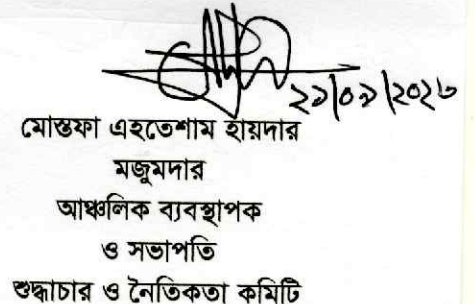 ২১/০১/২০২৬
মোস্তফা এহতেশাম হায়দার
মজুমদার
আঞ্চলিক ব্যবস্থাপক
ও সভাপতি
শুদ্ধাচার ও নৈতিকতা কমিটি